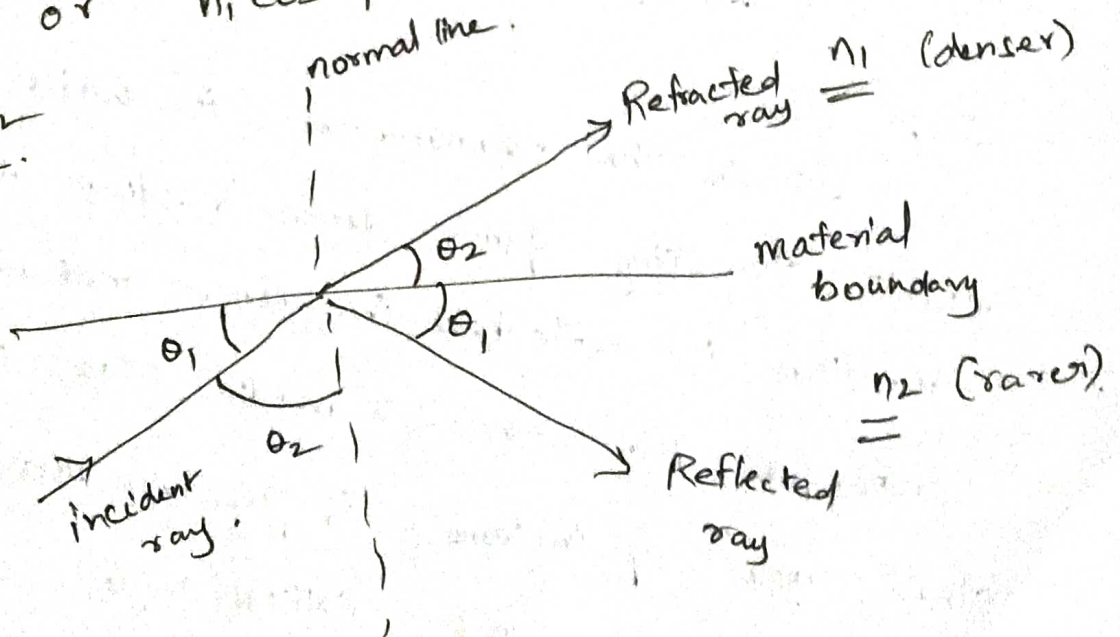 or n1
normal line.
Refracted
ray
n1 (denser)
θ2
material
boundary
θ1
θ1
n2 (rarer)
θ2
incident
ray.
Reflected
ray